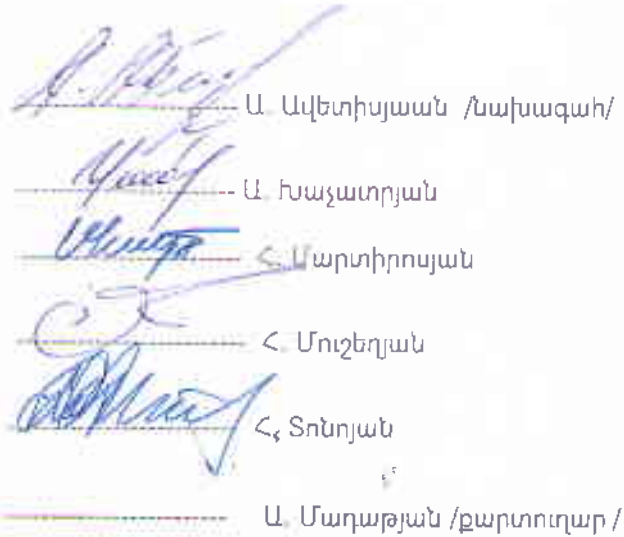 Ա. Ավետիսյաան /նախագահ/
Ա. Խաչատրյան
Հ. Մարտիրոսյան
Հ. Մուշեղյան
Հ. Տոնոյան
Ա. Մադաթյան /քարտուղար/